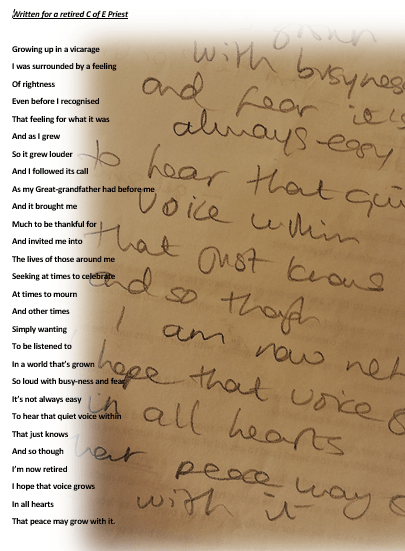 Written for a retired C of E Priest
Growing up in a vicarage
I was surrounded by a feeling
Of rightness
Even before I recognised
That feeling for what it was
And as I grew
So it grew louder
And I followed its call
As my Great-grandfather had before me
And it brought me
Much to be thankful for
And invited me into
The lives of those around me
Seeking at times to celebrate
At times to mourn
And other times
Simply wanting
To be listened to
In a world that's grown
So loud with busy-ness and fear
It's not always easy
To hear that quiet voice within
That just knows
And so though
I'm now retired
I hope that voice grows
In all hearts
That peace may grow with it.
with busyness
and fear it's
always easy
to hear that qui
voice within
that just knows
and so though
I am now ret
hope that voice g
in all hearts
peace may g
with it